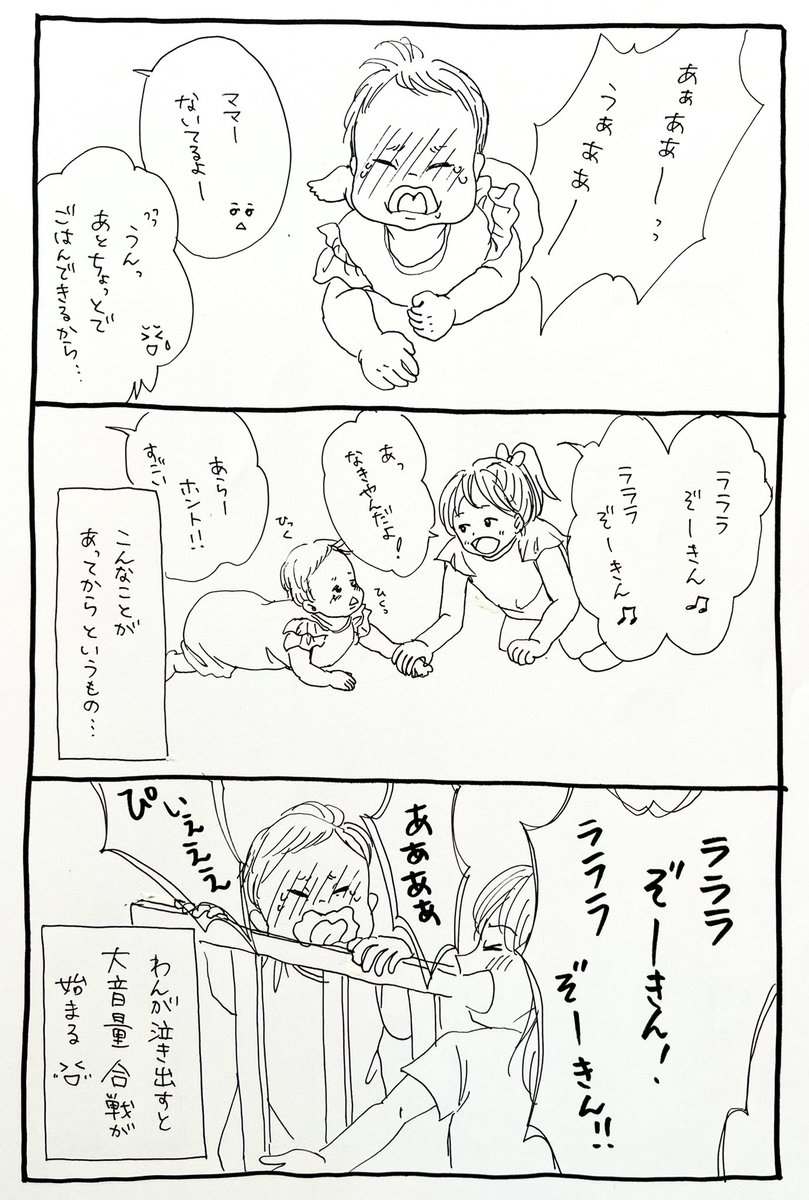 あぁああーっっ
うぁぁぁー
ママー
ないてるよー
うんっ
あとちょっとで
ごはんできるから…
ラララ
ぞーきん♫
ラララ
ぞーきん♫
あっ
なきやんだよ!
ひくっ
ひっく
あらー
ホント!!
すごい
こんなことが
あってからというもの…
ラララ
ぞーきん!
ラララ
ぞーきん!!
あぁあぁ
ぴぃえええ
わんが泣き出すと
大音量合戦が
始まる